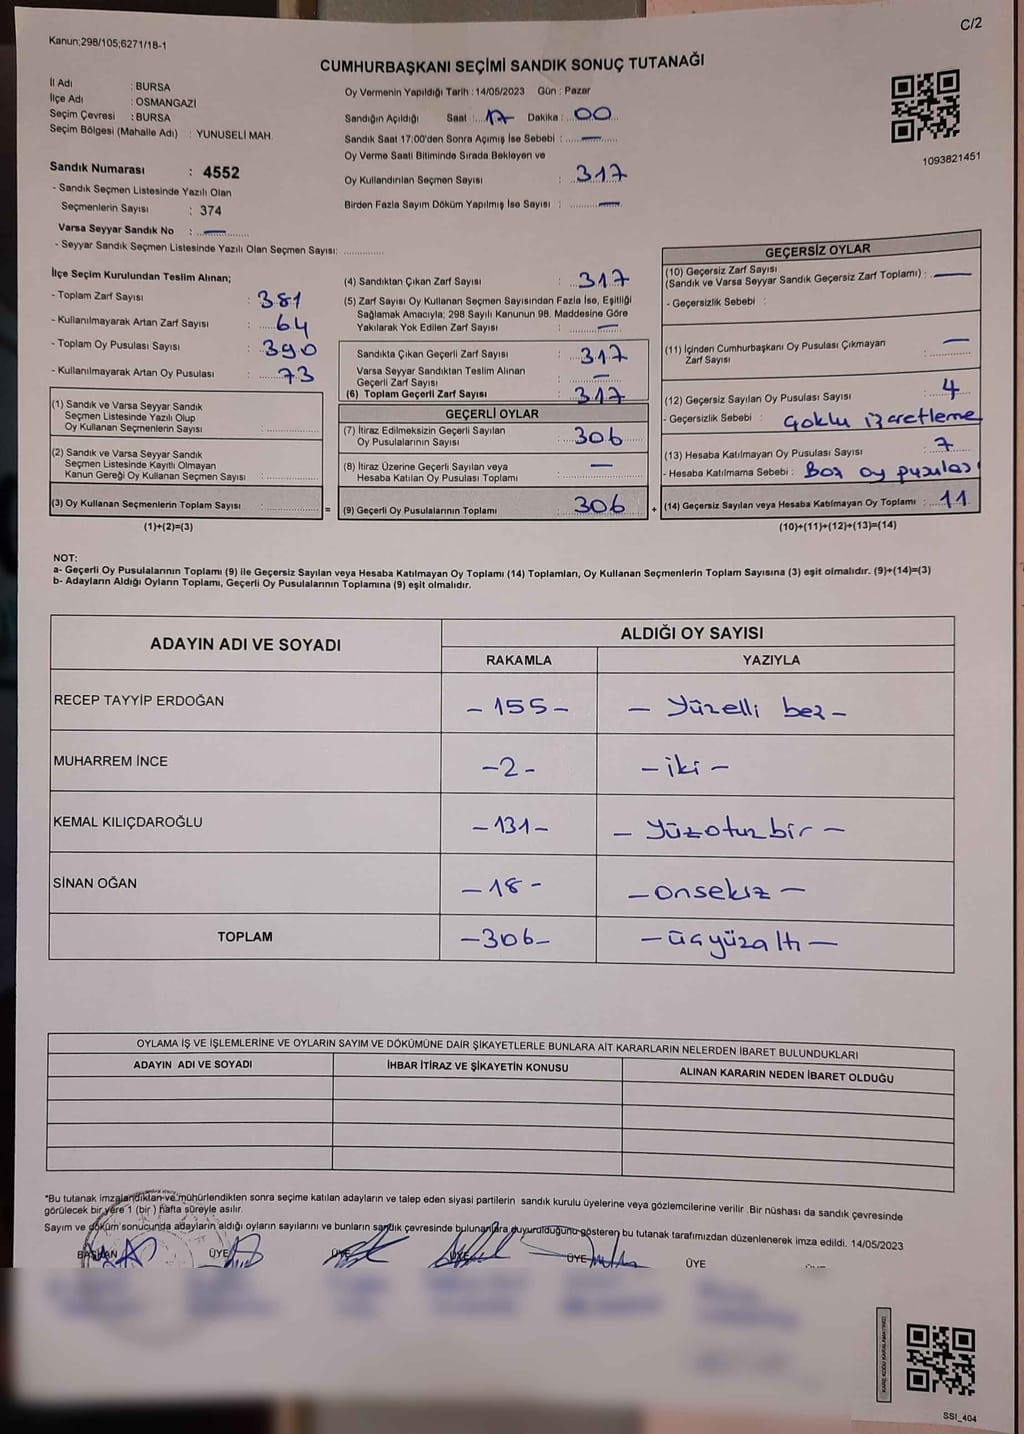 C/2
Kanun;298/105;6271/18-1
CUMHURBAŞKANI SEÇİMİ SANDIK SONUÇ TUTANAĞI
İl Adı : BURSA
İlçe Adı : OSMANGAZİ
Seçim Çevresi : BURSA
Seçim Bölgesi (Mahalle Adı) : YUNUSELİ MAH.
Oy Vermenin Yapıldığı Tarih : 14/05/2023 Gün : Pazar
Sandığın Açıldığı Saat : 17 Dakika : 00
Sandık Saat 17:00'den Sonra Açımış İse Sebebi : —
Oy Verme Saati Bitiminde Sırada Bekleyen ve
Oy Kullandırılan Seçmen Sayısı : 317
Birden Fazla Sayım Döküm Yapılmış İse Sayısı : —
1093821451
Sandık Numarası : 4552
- Sandık Seçmen Listesinde Yazılı Olan
Seçmenlerin Sayısı : 374
Varsa Seyyar Sandık No : —
- Seyyar Sandık Seçmen Listesinde Yazılı Olan Seçmen Sayısı:
İlçe Seçim Kurulundan Teslim Alınan;
- Toplam Zarf Sayısı : 381
- Kullanılmayarak Artan Zarf Sayısı : 64
- Toplam Oy Pusulası Sayısı : 390
- Kullanılmayarak Artan Oy Pusulası : 73
(1) Sandık ve Varsa Seyyar Sandık
Seçmen Listesinde Yazılı Olup
Oy Kullanan Seçmenlerin Sayısı :
(2) Sandık ve Varsa Seyyar Sandık
Seçmen Listesinde Kayıtlı Olmayan
Kanun Gereği Oy Kullanan Seçmen Sayısı :
(3) Oy Kullanan Seçmenlerin Toplam Sayısı :
(1)+(2)=(3)
(4) Sandıktan Çıkan Zarf Sayısı : 317
(5) Zarf Sayısı Oy Kullanan Seçmen Sayısından Fazla İse, Eşitliği
Sağlamak Amacıyla; 298 Sayılı Kanunun 98. Maddesine Göre
Yakılarak Yok Edilen Zarf Sayısı : —
Sandıkta Çıkan Geçerli Zarf Sayısı : 317
Varsa Seyyar Sandıktan Teslim Alınan
Geçerli Zarf Sayısı : —
(6) Toplam Geçerli Zarf Sayısı : 317
GEÇERLİ OYLAR
(7) İtiraz Edilmeksizin Geçerli Sayılan
Oy Pusulalarının Sayısı : 306
(8) İtiraz Üzerine Geçerli Sayılan veya
Hesaba Katılan Oy Pusulası Toplamı : —
= (9) Geçerli Oy Pusulalarının Toplamı : 306 +
GEÇERSİZ OYLAR
(10) Geçersiz Zarf Sayısı
(Sandık ve Varsa Seyyar Sandık Geçersiz Zarf Toplamı) : —
- Geçersizlik Sebebi :
(11) İçinden Cumhurbaşkanı Oy Pusulası Çıkmayan
Zarf Sayısı : —
(12) Geçersiz Sayılan Oy Pusulası Sayısı : 4
- Geçersizlik Sebebi : Çoklu işaretleme
(13) Hesaba Katılmayan Oy Pusulası Sayısı : 7
- Hesaba Katılmama Sebebi : Boş oy pusulası
(14) Geçersiz Sayılan veya Hesaba Katılmayan Oy Toplamı : 11
(10)+(11)+(12)+(13)=(14)
NOT:
a- Geçerli Oy Pusulalarının Toplamı (9) ile Geçersiz Sayılan veya Hesaba Katılmayan Oy Toplamı (14) Toplamları, Oy Kullanan Seçmenlerin Toplam Sayısına (3) eşit olmalıdır. (9)+(14)=(3)
b- Adayların Aldığı Oyların Toplamı, Geçerli Oy Pusulalarının Toplamına (9) eşit olmalıdır.
ADAYIN ADI VE SOYADI ALDIĞI OY SAYISI
RAKAMLA YAZIYLA
RECEP TAYYİP ERDOĞAN – 155 – – Yüzelli beş –
MUHARREM İNCE – 2 – – iki –
KEMAL KILIÇDAROĞLU – 131 – – Yüzotuzbir –
SİNAN OĞAN – 18 – – onsekiz –
TOPLAM – 306 – – üçyüzaltı –
OYLAMA İŞ VE İŞLEMLERİNE VE OYLARIN SAYIM VE DÖKÜMÜNE DAİR ŞİKAYETLERLE BUNLARA AİT KARARLARIN NELERDEN İBARET BULUNDUKLARI
ADAYIN ADI VE SOYADI İHBAR İTİRAZ VE ŞİKAYETİN KONUSU ALINAN KARARIN NEDEN İBARET OLDUĞU
*Bu tutanak imzalandıktan ve mühürlendikten sonra seçime katılan adayların ve talep eden siyasi partilerin sandık kurulu üyelerine veya gözlemcilerine verilir .Bir nüshası da sandık çevresinde
görülecek bir yere 1 (bir ) hafta süreyle asılır.
Sayım ve döküm sonucunda adayların aldığı oyların sayılarını ve bunların sandık çevresinde bulunanlara duyurulduğunu gösteren bu tutanak tarafımızdan düzenlenerek imza edildi. 14/05/2023
BAŞKAN ÜYE ÜYE ÜYE ÜYE ÜYE
KARE KODU KARALAMAYINIZ!
SSI_404